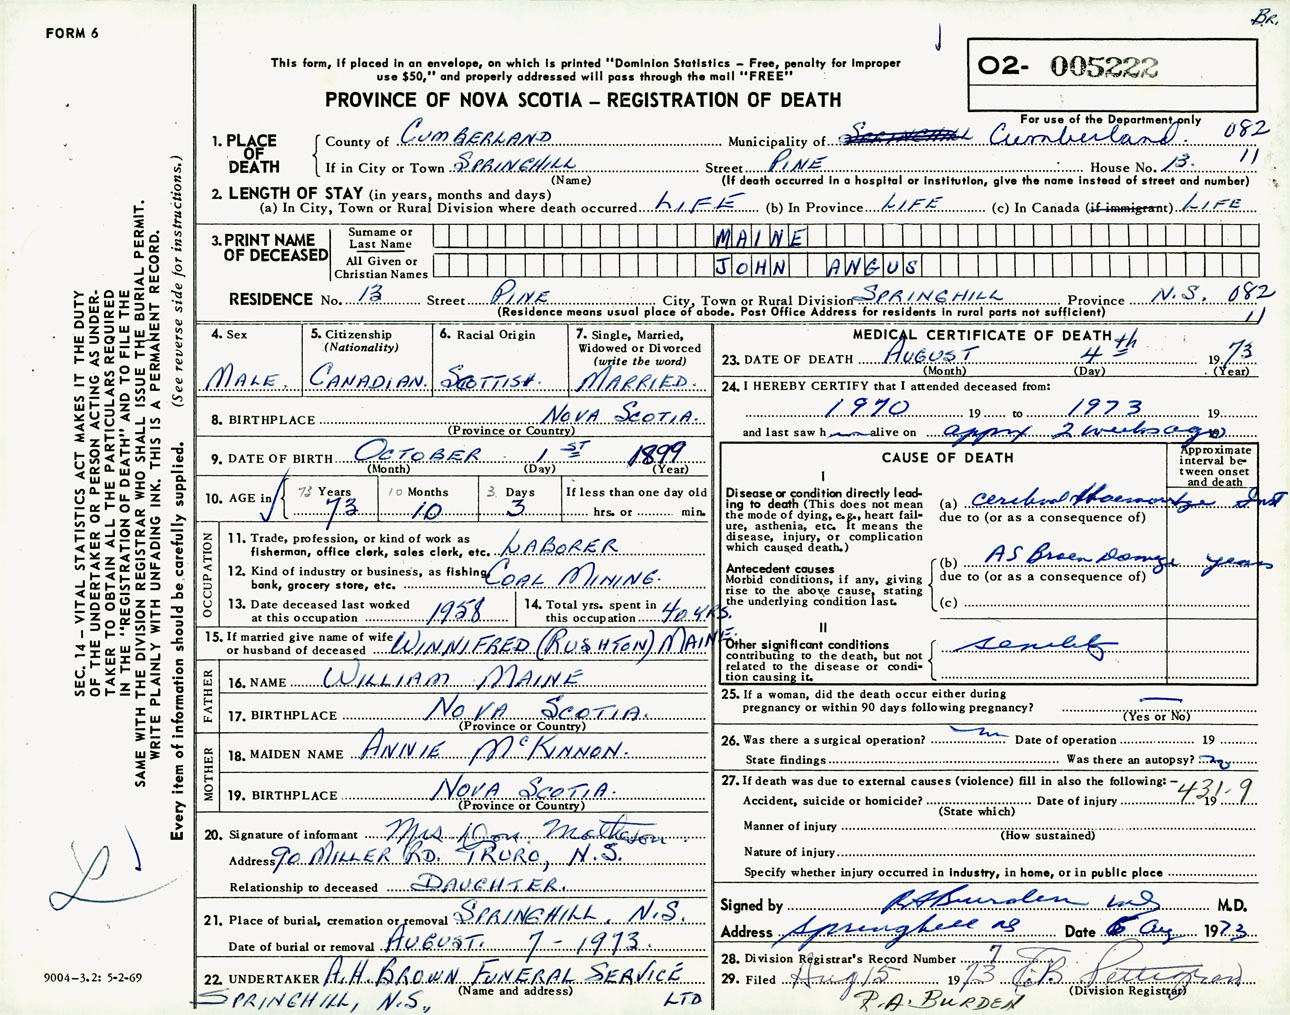 Br.
FORM 6
This form, if placed in an envelope, on which is printed "Dominion Statistics – Free, penalty for improper
use $50," and properly addressed will pass through the mail "FREE"
PROVINCE OF NOVA SCOTIA – REGISTRATION OF DEATH
O2- 005222
For use of the Department only
1. PLACE OF DEATH County of CUMBERLAND Municipality of SPRINGHILL Cumberland. 082
If in City or Town SPRINGHILL Street PINE House No. 13. 11
(Name) (If death occurred in a hospital or institution, give the name instead of street and number)
2. LENGTH OF STAY (in years, months and days)
(a) In City, Town or Rural Division where death occurred LIFE (b) In Province LIFE (c) In Canada (if immigrant) LIFE
3. PRINT NAME OF DECEASED
Surname or Last Name MAINE
All Given or Christian Names JOHN ANGUS
RESIDENCE No. 13 Street PINE City, Town or Rural Division SPRINGHILL Province N.S. 082
(Residence means usual place of abode. Post Office Address for residents in rural parts not sufficient) 11
4. Sex MALE.
5. Citizenship (Nationality) CANADIAN.
6. Racial Origin SCOTTISH.
7. Single, Married, Widowed or Divorced (write the word) MARRIED.
8. BIRTHPLACE NOVA SCOTIA.
(Province or Country)
9. DATE OF BIRTH OCTOBER 1ST 1899
(Month) (Day) (Year)
10. AGE in 73 Years 10 Months 3 Days If less than one day old
73 10 3 hrs. or min.
OCCUPATION
11. Trade, profession, or kind of work as
fisherman, office clerk, sales clerk, etc. LABORER
12. Kind of industry or business, as fishing,
bank, grocery store, etc. COAL MINING.
13. Date deceased last worked
at this occupation 1958
14. Total yrs. spent in
this occupation 40 YRS.
15. If married give name of wife
or husband of deceased WINNIFRED (RUSHTON) MAINE.
FATHER
16. NAME WILLIAM MAINE
17. BIRTHPLACE NOVA SCOTIA.
(Province or Country)
MOTHER
18. MAIDEN NAME ANNIE McKINNON.
19. BIRTHPLACE NOVA SCOTIA.
(Province or Country)
20. Signature of informant Mrs Don Matheson
Address 90 MILLER RD. TRURO, N.S.
Relationship to deceased DAUGHTER.
21. Place of burial, cremation or removal SPRINGHILL, N.S.
Date of burial or removal AUGUST. 7 - 1973.
22. UNDERTAKER A.H. BROWN FUNERAL SERVICE
(Name and address)
SPRINGHILL, N.S., LTD
MEDICAL CERTIFICATE OF DEATH
23. DATE OF DEATH AUGUST 4th 1973
(Month) (Day) (Year)
24. I HEREBY CERTIFY that I attended deceased from:
1970 19 to 1973 19
and last saw h alive on approx 2 weeks ago 19
CAUSE OF DEATH
Approximate interval between onset and death
I
Disease or condition directly leading
to death (This does not mean
the mode of dying, e.g., heart failure,
asthenia, etc. It means the
disease, injury, or complication
which caused death.)
(a) cerebral Haemorrhage Inst
due to (or as a consequence of)
Antecedent causes
Morbid conditions, if any, giving
rise to the above cause, stating
the underlying condition last.
(b) AS Brain Damage years
due to (or as a consequence of)
(c)
II
Other significant conditions
contributing to the death, but not
related to the disease or condition
causing it.
senility
25. If a woman, did the death occur either during
pregnancy or within 90 days following pregnancy? —
(Yes or No)
26. Was there a surgical operation? no Date of operation 19
State findings Was there an autopsy? no
27. If death was due to external causes (violence) fill in also the following: – 431.9
Accident, suicide or homicide? Date of injury 19
(State which)
Manner of injury
(How sustained)
Nature of injury
Specify whether injury occurred in industry, in home, or in public place
Signed by RA Burden md M.D.
Address Springhill NS Date 6 Aug 1973
28. Division Registrar's Record Number 7
29. Filed Aug 15 1973 E.B. Pettigrew
(Division Registrar)
R.A. BURDEN
SEC. 14 – VITAL STATISTICS ACT MAKES IT THE DUTY
OF THE UNDERTAKER OR PERSON ACTING AS UNDERTAKER
TO OBTAIN ALL THE PARTICULARS REQUIRED
IN THE "REGISTRATION OF DEATH" AND TO FILE THE
SAME WITH THE DIVISION REGISTRAR WHO SHALL ISSUE THE BURIAL PERMIT.
WRITE PLAINLY WITH UNFADING INK. THIS IS A PERMANENT RECORD.
Every item of information should be carefully supplied. (See reverse side for instructions.)
9004–3.2: 5-2-69